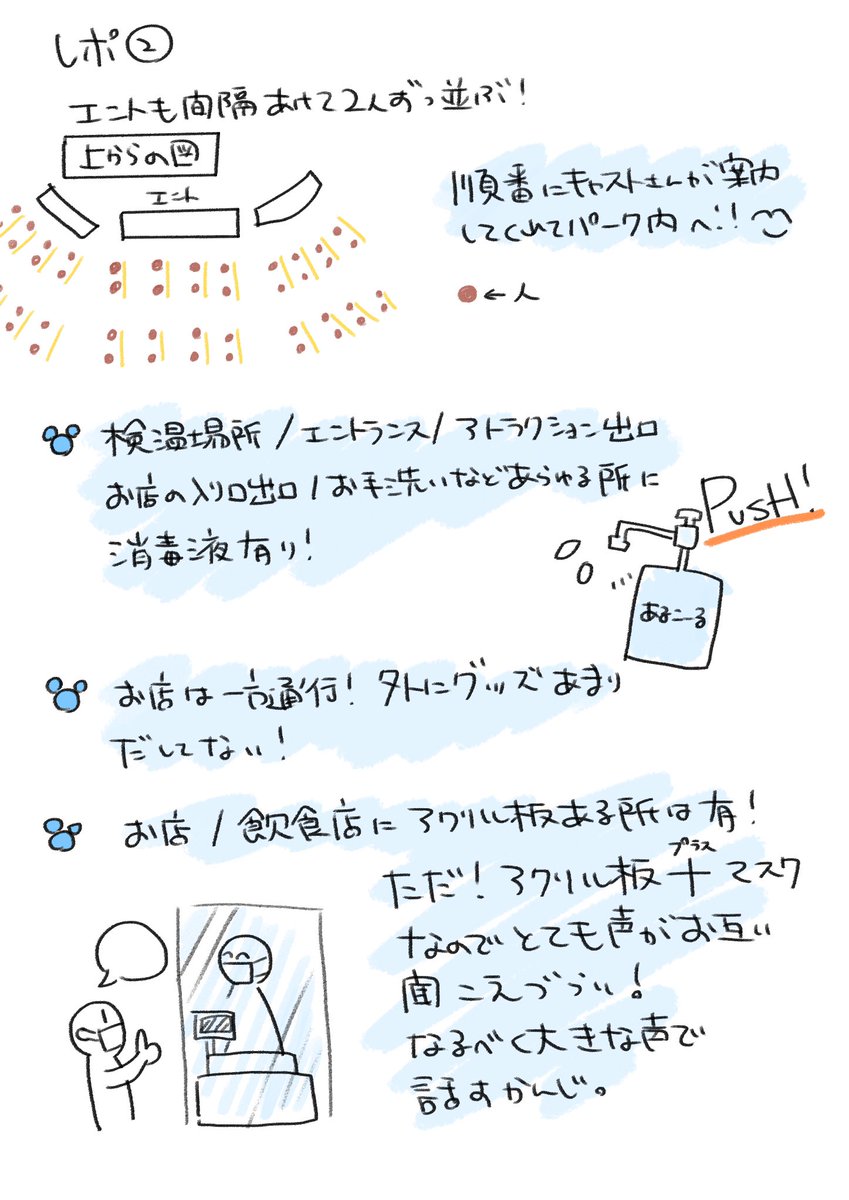 レポ②
エントも間隔あけて2人ずつ並ぶ!
上からの図
エント
順番にキャストさんが案内
してくれてパーク内へ!!
←人
検温場所/エントランス/アトラクション出口
お店の入り口出口/お手洗いなどあらゆる所に
消毒液有り!
PUSH!
あるこーる
お店は一方通行!外にグッズあまり
だしてない!
お店/飲食店にアクリル板ある所は有!
プラス
ただ!アクリル板+マスク
なのでとても声がお互い
聞こえづらい!
なるべく大きな声で
話すかんじ。